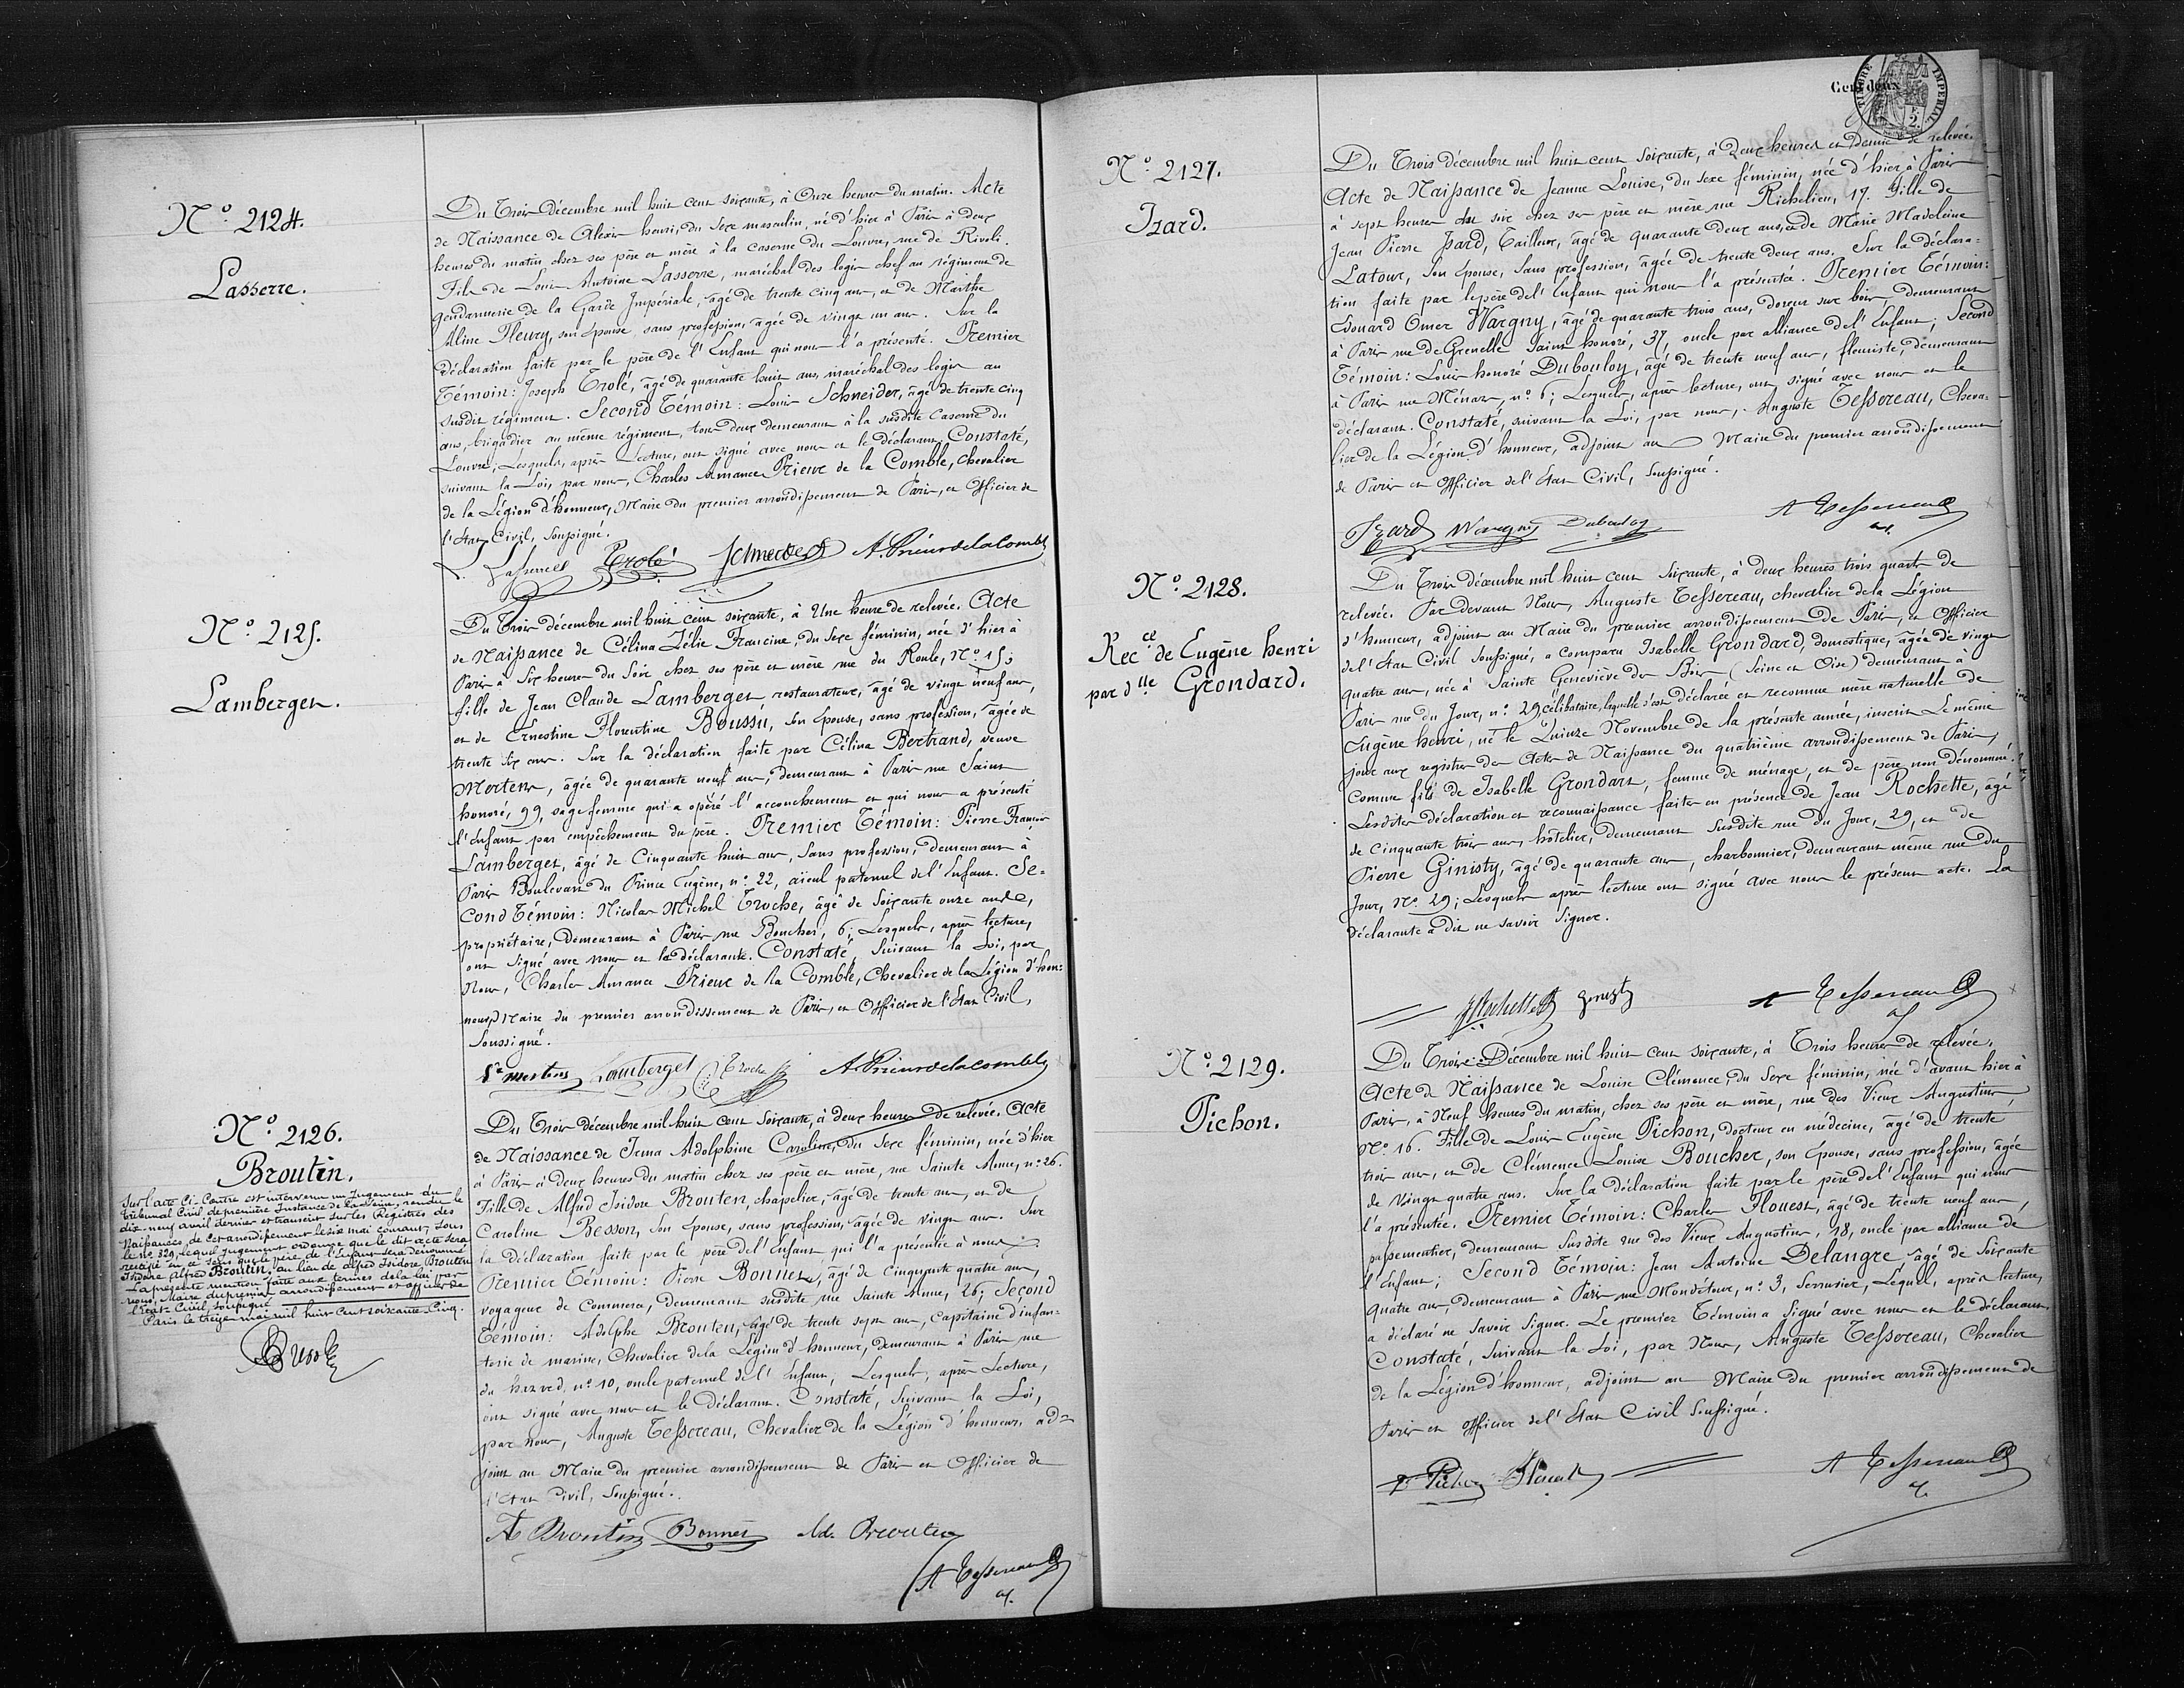 N.º 2124.
Lasserre.
Du Trois Décembre mil huit cent soixante, à Onze heures du matin. Acte
de Naissance de Alexis henri, du sexe masculin, né d'hier à Paris à deux
heures du matin chez ses père et mère à la caserne du Louvre, rue de Rivoli.
Fils de Louis Antoine Lasserre, maréchal des logis chef au régiment de
gendarmerie de la Garde Impériale, âgé de trente cinq ans, et de Marthe
Aline Fleury, son épouse sans profession, âgée de vingt un ans. Sur la
déclaration faite par le père de l'Enfant qui nous l'a présenté. Premier
Témoin: Joseph Trolé, âgé de quarante huit ans, maréchal des logis au
susdit régiment. Second Témoin: Louis Schneider, âgé de trente cinq
ans, brigadier au même régiment, tous deux demeurant à la susdite caserne du
Louvre; Lesquels, après Lecture, ont signé avec nous et le Déclarant, Constaté,
suivant la Loi, par nous, Charles Amance Prieur de la Comble, Chevalier
de la Légion d'honneur, Maire du premier arrondissement de Paris, et Officier de
l'Etat Civil, Soussigné.
L. Lasserre Trolé Schneider A. Prieur de la Comble
N.º 2125.
Lamberget.
Du Trois Décembre mil huit cent soixante, à Une heure de relevée. Acte
de Naissance de Célina Zélie Francine, du sexe féminin, née d'hier à
Paris à Six heures du Soir chez ses père et mère rue du Roule, N.º 15;
fille de Jean Claude Lamberget, restaurateur, âgé de vingt neuf ans,
et de Ernestine Florentine Boussu, son Epouse, sans profession, âgée de
trente six ans. Sur la déclaration faite par Céline Bertrand, veuve
Mertens, âgée de quarante neuf ans, demeurant à Paris rue Saint
honoré, 99, sage femme qui a opéré l'accouchement et qui nous a présenté
l'Enfant par empêchement du père. Premier Témoin: Pierre François
Lamberget, âgé de Cinquante huit ans, Sans profession, Demeurant à
Paris Boulevart du Prince Eugène, n.º 22, aïeul paternel de l'Enfant. Se=
cond Témoin: Nicolas Michel Troche, âgé de Soixante onze ans,
propriétaire, Demeurant à Paris rue Boucher, 6; Lesquels, après lecture,
ont signé avec nous et la déclarante. Constaté, Suivant la Loi, par
Nous, Charles Amance Prieur de la Comble, Chevalier de la Légion d'hon=
neur, Maire du premier arrondissement de Paris, et Officier de l'Etat Civil,
Soussigné.
Vᵉ Mertens Lamberget Troche A. Prieur de la Comble
N.º 2126.
Broutin.
Sur l'acte Ci-Contre est intervenu un Jugement du
Tribunal Civil de première Instance de la Seine, rendu le
dix-neuf avril dernier et transcrit sur les Registres des
Naissances de cet arrondissement le six mai courant, sous
le n.º 829, lequel Jugement ordonne que le dit acte sera
rectifié en ce sens que le père de l'Enfant sera dénommé
Isidore Alfred Broutin, au lieu de Alfred Isidore Brouten
La présente mention faite aux termes de la loi par
nous, Maire du premier arrondissement et officier de
l'Etat-Civil, soussigné
Paris le treize mai mil huit cent soixante-Cinq.
Du Trois décembre mil huit cent Soixante, à deux heures de relevée. Acte
de Naissance de Irma Adolphine Caroline, du Sexe féminin, née d'hier
à Paris à deux heures du matin chez ses père et mère, rue Sainte Anne, n.º 26.
Fille de Alfred Isidore Brouten, chapelier, âgé de trente ans, et de
Caroline Besson, son Epouse, sans profession, âgée de vingt ans. Sur
la déclaration faite par le père de l'Enfant qui l'a présentée à nous.
Premier Témoin: Pierre Bonnet, âgé de Cinquante quatre ans,
voyageur de Commerce, Demeurant susdite rue Sainte Anne, 26; Second
Témoin: Adolphe Brouten, âgé de trente sept ans, Capitaine d'infan=
terie de marine, Chevalier de la Légion d'honneur, demeurant à Paris rue
du hazard, n.º 10, oncle paternel de l'Enfant, Lesquels, après Lecture,
ont signé avec nous et le Déclarant. Constaté, Suivant la Loi,
par nous, Auguste Tessereau, Chevalier de la Légion d'honneur, ad=
joint au Maire du premier arrondissement de Paris et Officier de
l'Etat Civil, Soussigné.
A Broutin Bonnet Ad. Brouten
A Tessereau
Cent deux
TIMBRE IMPERIAL
2
N.º 2127.
Izard.
Du Trois décembre mil huit cent Soixante, à Deux heures et Demie de relevée.
Acte de Naissance de Jeanne Louise, du sexe féminin, née d'hier à Paris
à sept heures du soir chez ses père et mère rue Richelieu, 17. Fille de
Jean Pierre Izard, Tailleur, âgé de quarante deux ans, et de Marie Madeleine
Latour, son épouse, Sans profession, âgée de trente deux ans. Sur la déclara=
tion faite par le père de l'Enfant qui nous l'a présentée. Premier Témoin:
Edouard Omer Wargny, âgé de quarante trois ans, doreur sur bois, demeurant
à Paris rue de Grenelle Saint honoré, 37, oncle par alliance de l'Enfant; Second
Témoin: Louis honoré Dubouloy, âgé de trente neuf ans, fleuriste, demeurant
à Paris rue Ménars, n.º 6; Lesquels, après lecture, ont signé avec nous et le
déclarant. Constaté, suivant la Loi, par nous, Auguste Tessereau, Cheva=
lier de la Légion d'honneur, adjoint au Maire du premier arrondissement
de Paris et Officier de l'Etat Civil, Soussigné.
Izard Wargny Dubouloy A Tessereau
N.º 2128.
Rec.ce de Eugène henri
par d.lle Grondard.
Du Trois décembre mil huit cent Soixante, à deux heures trois quarts de
relevée. Par devant Nous, Auguste Tessereau, chevalier de la Légion
d'honneur, adjoint au Maire du premier arrondissement de Paris, et Officier
de l'Etat Civil Soussigné, a Comparu Isabelle Grondard, domestique, âgée de vingt
quatre ans, née à Sainte Geneviève des Bois (Seine et Oise) demeurant à
Paris rue du Jour, n.º 29, célibataire, laquelle s'est déclarée et reconnue mère naturelle de
Eugène henri, né le Quinze Novembre de la présente année, inscrit Le même
jour aux registres des Actes de Naissance du quatrième arrondissement de Paris,
comme fils de Isabelle Grondart, femme de ménage, et de père non dénommé.
Lesdites déclaration et reconnaissance faites en présence de Jean Rochette, âgé
de Cinquante trois ans, hôtelier, demeurant susdite rue du Jour, 29, et de
Pierre Ginisty, âgé de quarante ans, charbonnier, demeurant même rue du
Jour, N.º 29; Lesquels après lecture ont signé avec nous le présent acte. La
Déclarante a dit ne savoir signer.
Rochette A Tessereau
N.º 2129.
Pichon.
Du Trois Décembre mil huit cent soixante, à Trois heures de relevée.
Acte de Naissance de Louise Clémence, du Sexe féminin, née d'avant hier à
Paris, à Neuf heures du matin, chez ses père et mère, rue des Vieux Augustins,
N.º 16. Fille de Louis Eugène Pichon, docteur en médecine, âgé de trente
trois ans, et de Clémence Louise Boucher, son Epouse, sans profession, âgée
de vingt quatre ans. Sur la Déclaration faite par le père de l'Enfant qui nous
l'a présentée. Premier Témoin: Charles Flouest, âgé de trente neuf ans,
passementier, demeurant Susdite rue des Vieux Augustins, 18, oncle par alliance de
l'Enfant; Second Témoin: Jean Antoine Delangre, âgé de Soixante
quatre ans, demeurant à Paris rue Mondétour, n.º 3, Serrurier, Lequel, après lecture,
a déclaré ne savoir signer. Le premier Témoin a signé avec nous et le déclarant.
Constaté, Suivant la Loi, par Nous, Auguste Tessereau, Chevalier
de la Légion d'honneur, adjoint au Maire du premier arrondissement de
Paris et Officier de l'Etat Civil Soussigné.
Pichon Flouest A Tessereau